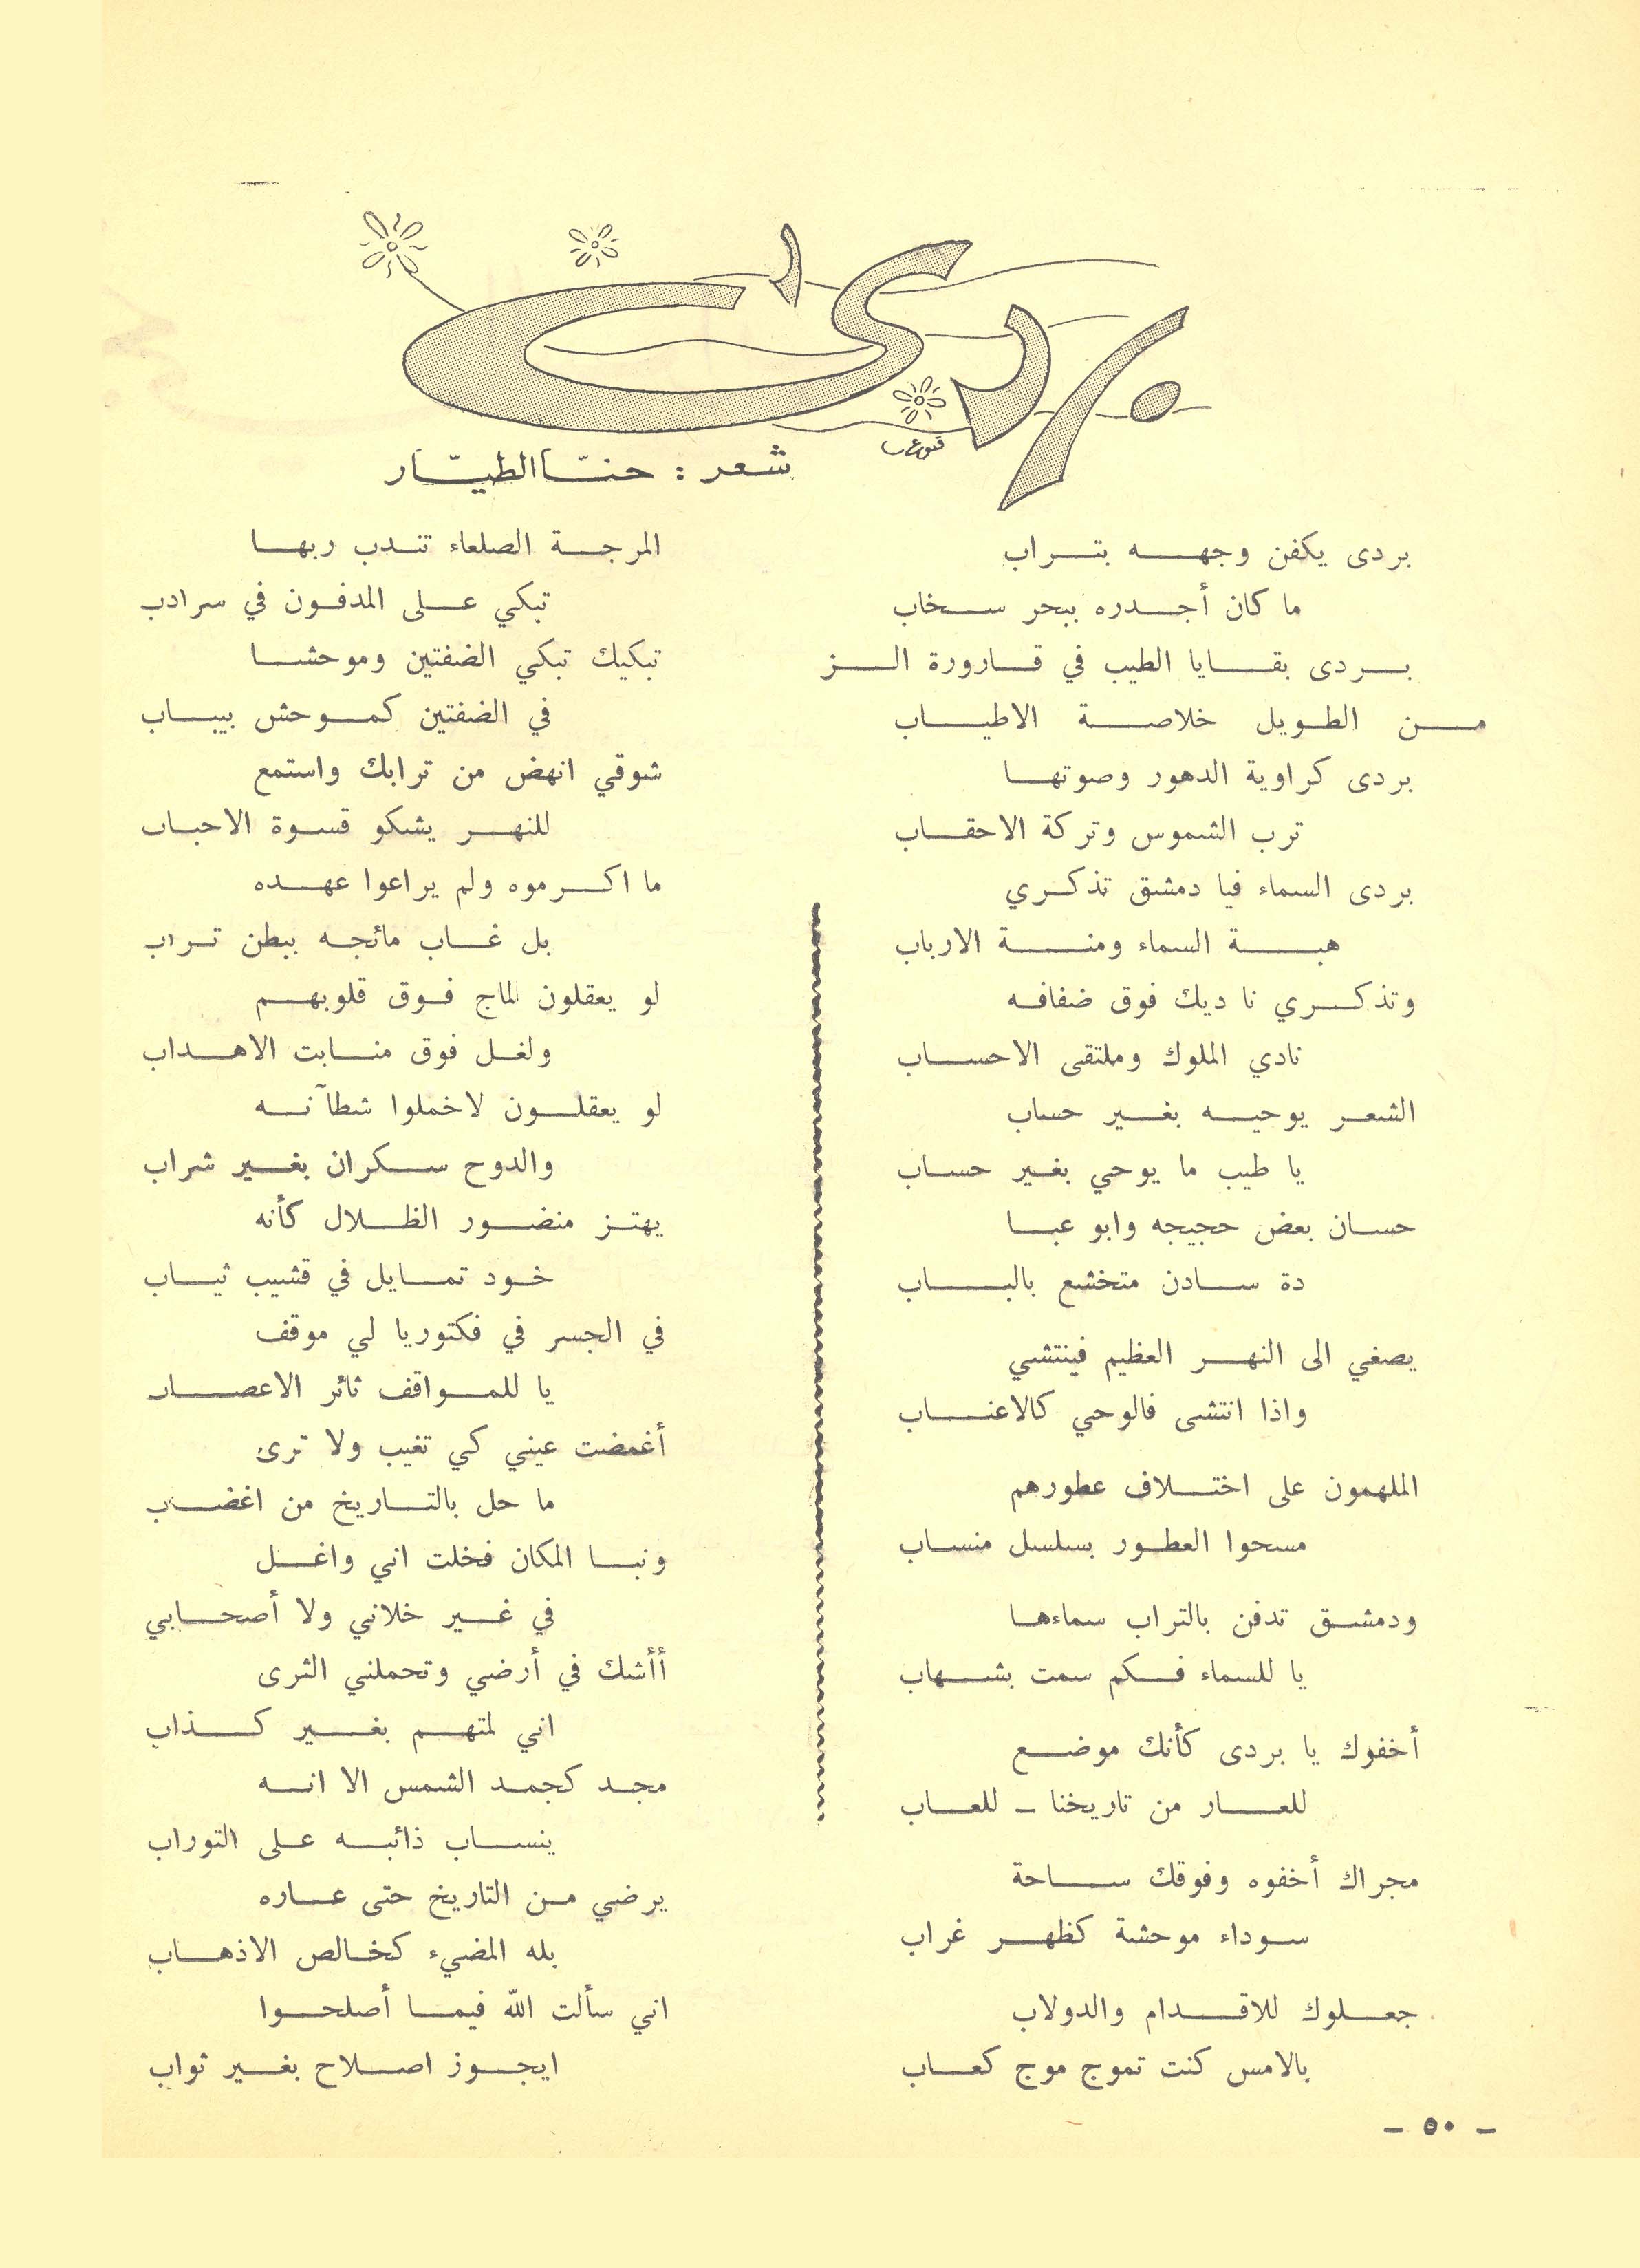 بردى
شعر : حنّا الطيّار
بردى يكفن وجهه بتراب
ما كان أجدره ببحر سخاب
بردى بقايا الطيب في قارورة الز
من الطويل خلاصة الاطياب
بردى كراوية الدهور وصوتها
ترب الشموس وتركة الاحقاب
بردى السماء فيا دمشق تذكري
هبة السماء ومنة الارباب
وتذكري نا ديك فوق ضفافه
نادي الملوك وملتقى الاحساب
الشعر يوحيه بغير حساب
يا طيب ما يوحي بغير حساب
حسان بعض حجيجه وابو عبا
دة سادن متخشع بالباب
يصغي الى النهر العظيم فينتشي
واذا انتشى فالوحي كالاعناب
الملهمون على اختلاف عطورهم
مسحوا العطور بسلسل منساب
ودمشق تدفن بالتراب سماءها
يا للسماء فكم سمت بشهاب
أخفوك يا بردى كأنك موضع
للعار من تاريخنا - للعاب
مجراك أخفوه وفوقك ساحة
سوداء موحشة كظهر غراب
جعلوك للاقدام والدولاب
بالامس كنت تموج موج كعاب
المرجة الصلعاء تندب ربها
تبكي على المدفون في سرادب
تبكيك تبكي الضفتين وموحشا
في الضفتين كموحش بيباب
شوقي انهض من ترابك واستمع
للنهر يشكو قسوة الاحباب
ما اكرموه ولم يراعوا عهده
بل غاب مائجه ببطن تراب
لو يعقلون لماج فوق قلوبهم
ولغل فوق منابت الاهداب
لو يعقلون لاخملوا شطآنه
والدوح سكران بغير شراب
يهتز منضور الظلال كأنه
خود تمايل في قشيب ثياب
في الجسر في فكتوريا لي موقف
يا للمواقف ثائر الاعصاب
أغمضت عيني كي تغيب ولا ترى
ما حل بالتاريخ من اغضاب
ونبا المكان فخلت اني واغل
في غير خلاني ولا أصحابي
أأشك في أرضي وتحملني الثرى
اني لمتهم بغير كذاب
مجد كجمد الشمس الا انه
ينساب ذائبه على التوراب
يرضي من التاريخ حتى عاره
بله المضيء كخالص الاذهاب
اني سألت الله فيما أصلحوا
ايجوز اصلاح بغير ثواب
- ٥٠ -